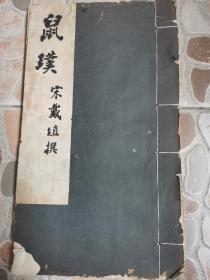 鼠璞
宋戴埴撰